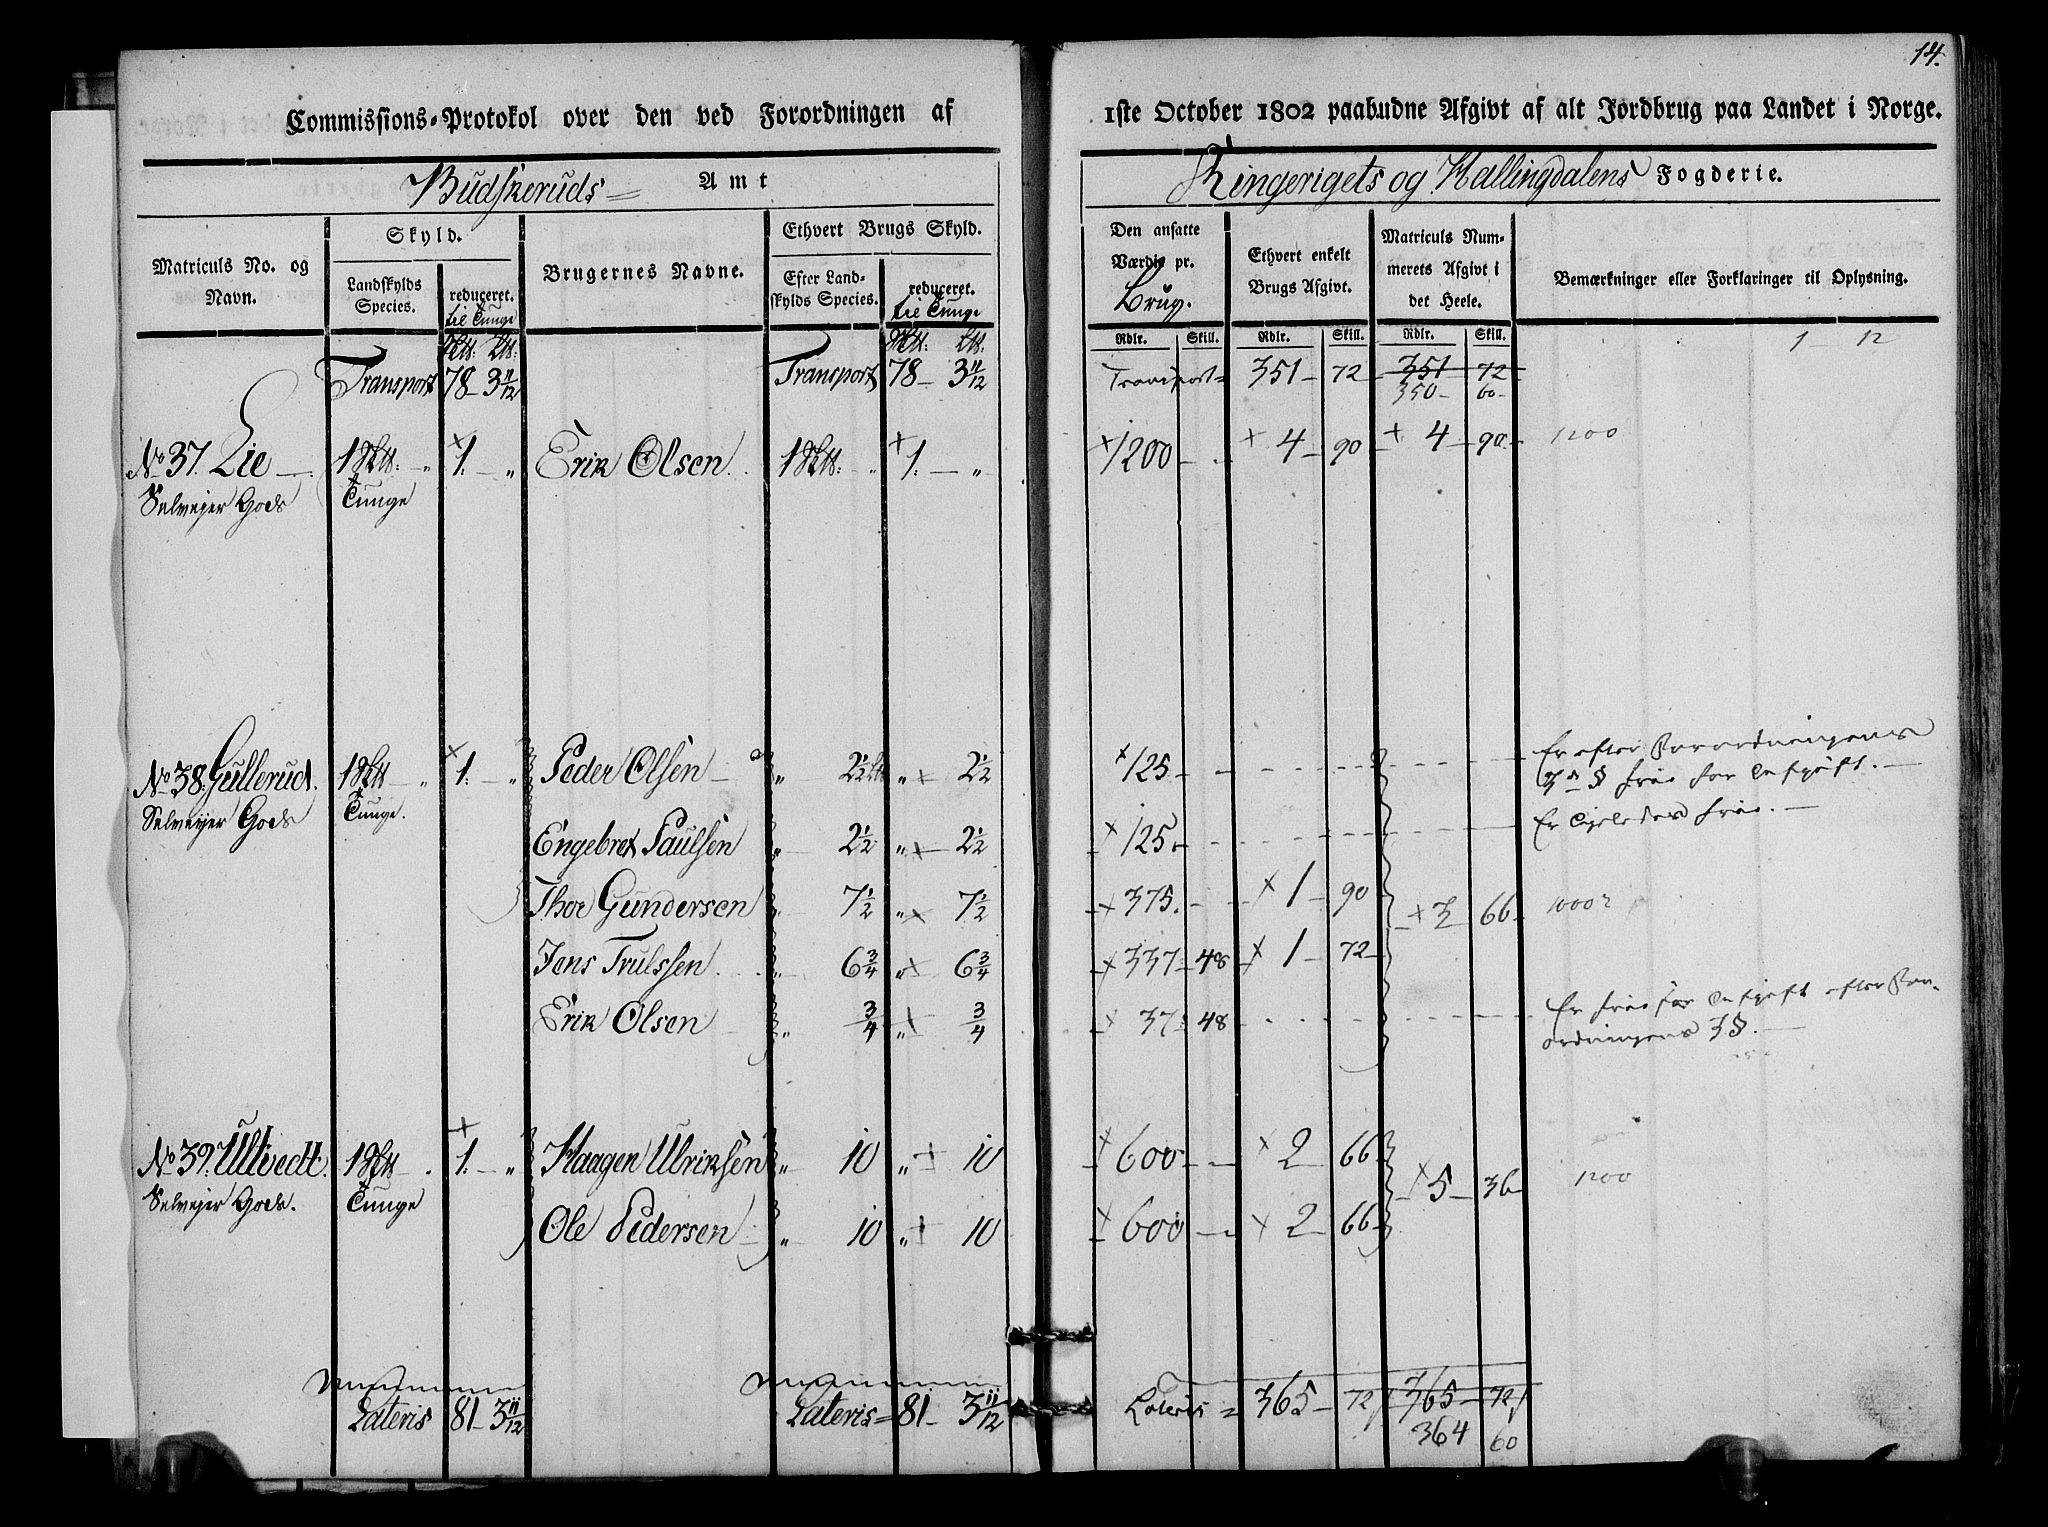 14.
Commissions-Protokol over den ved Forordningen af 1ste October 1802 paabudne Afgivt af alt Jordbrug paa Landet i Norge.
Budskeruds Amt Ringerigets og Hallingdalens Fogderie.
Matriculs No. og Navn.
Skyld.
Landskylds Species.
reduceret. til Tunge
Brugernes Navne.
Ethvert Brugs Skyld.
Efter Landskylds Species.
reduceret. til Tunge
Den ansatte Værdie pr. Brug.
Ethvert enkelt Brugs Afgivt.
Matriculs Nummerets Afgivt i det Heele.
Bemærkninger eller Forklaringer til Oplysning.
Rdlr. Skill. Rdlr. Skill. Rdlr. Skill. 1 12
Transport 78 - 3 11/12 Transport 78 - 3 11/12 Transport = 351 - 72 - 351 - 72
350 - 60 -
No 37. Lie 1 - " 1. - " Erik Olsen 1 " 1. - " 1200 - - 4 - 90 4 - 90 1200
Selveyer Gods Tunge
No 38. Gullerud. 1 - " 1. - " Peder Olsen " 2 1/2 " 2 1/2 125 - - Er efter Forordningens
3de § frie for Afgift. -
Selveyer Gods Tunge. Engebret Paulsen " 2 1/2 " 2 1/2 125 - Er ligeledes frie. -
Thor Gundersen " 7 1/2 " 7 1/2 375. - - 1 - 90 3 66 1000
Jens Trulssen " 6 3/4 " 6 3/4 337 - 48 1 - 72
Erik Olsen " 3/4 " 3/4 37 : 48 Er frie for Afgift efter For-
ordningens 3 §. -
No 39. Ultvedt. 1 . 1. - " Haagen Ulriksen " 10 " 10 600 - - 2 66 5 - 36 1200
Selveyer Gods. Tunge
Ole Pedersen " 10 " 10 600 - 2 - 66
Lateris 81 - 3 11/12 Lateris = 81 - 3 11/12 Lateris = 365 - 72 365 - 72
364 60